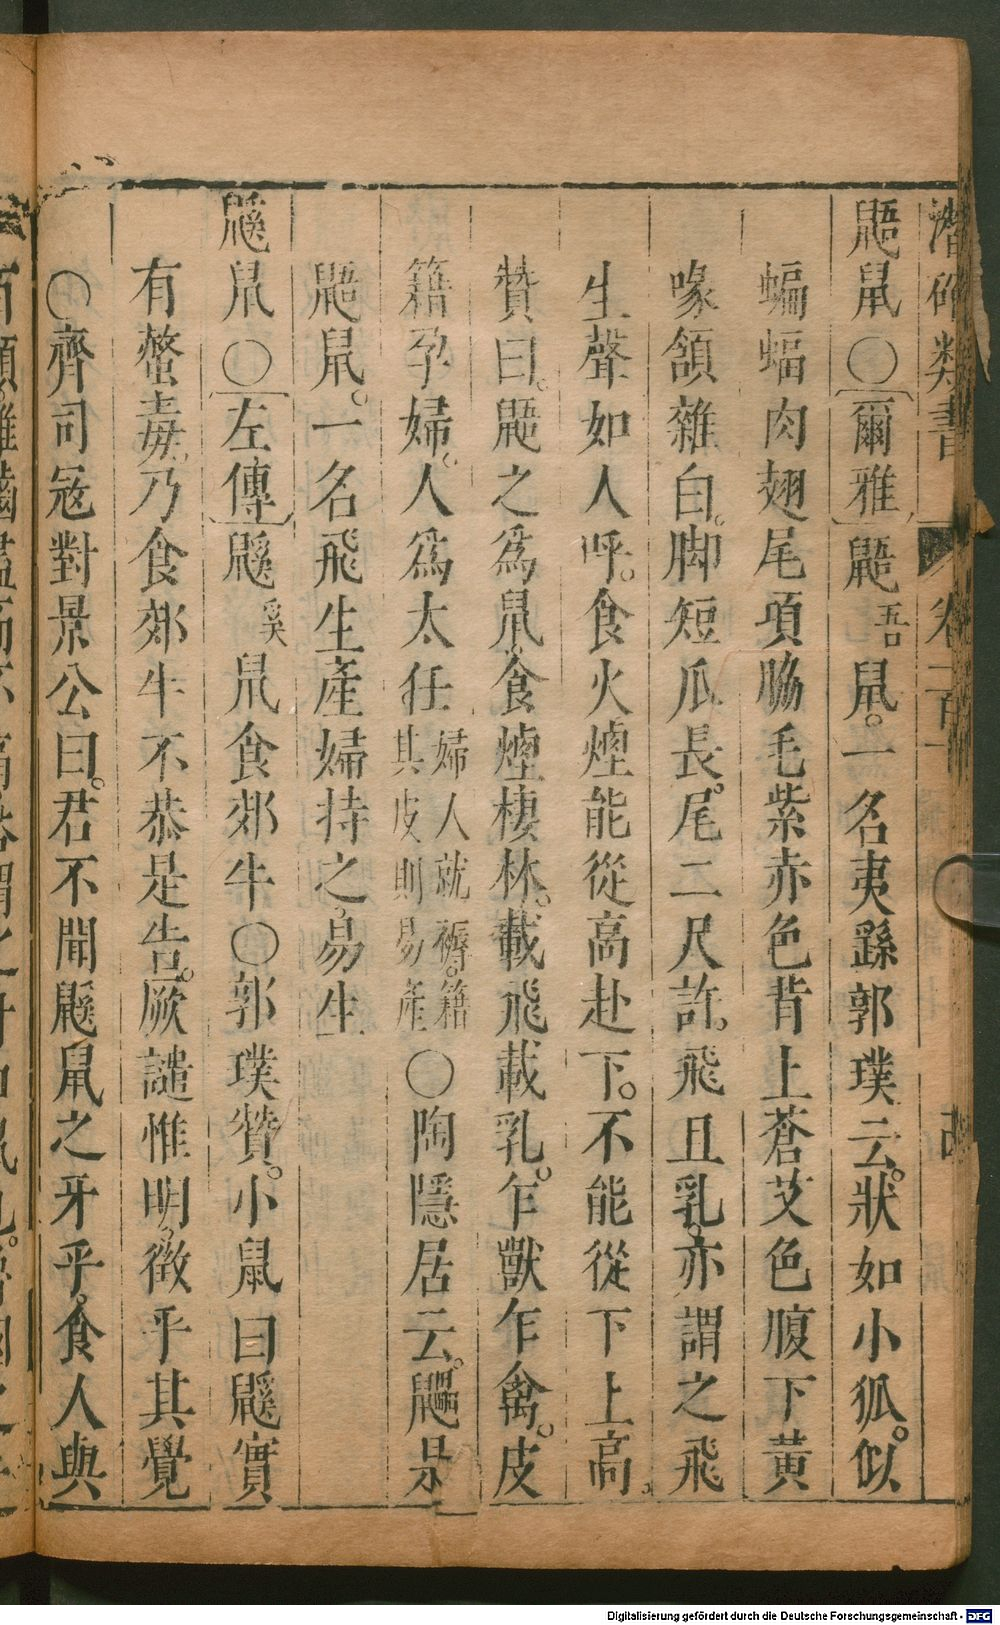 潛確類書 卷一百
鼯鼠〇〔爾雅〕鼯吾鼠。一名夷繇郭璞云。狀如小狐。似
蝙蝠肉翅尾項脇毛紫赤色背上蒼艾色腹下黃
喙頷雜白。脚短瓜長。尾二尺許。飛且乳。亦謂之飛
生聲如人呼。食火煙能從高赴下。不能從下上高、
贊曰。鼯之爲鼠。食煙棲林。載飛載乳。乍獸乍禽。皮
籍孕婦。人爲太任婦人就褥。籍其皮則易產〇陶隱居云。鼺是
鼯鼠。一名飛生產婦持之。易生
鼷鼠〇〔左傳〕鼷奚鼠食郊牛〇郭璞贊。小鼠曰鼷實
有螫毒、乃食郊牛不恭是告。厥譴惟明、徵乎其覺
〇齊司寇對景公曰。君不聞鼷鼠之牙乎。食人與
Digitalisierung gefördert durch die Deutsche Forschungsgemeinschaft - DFG